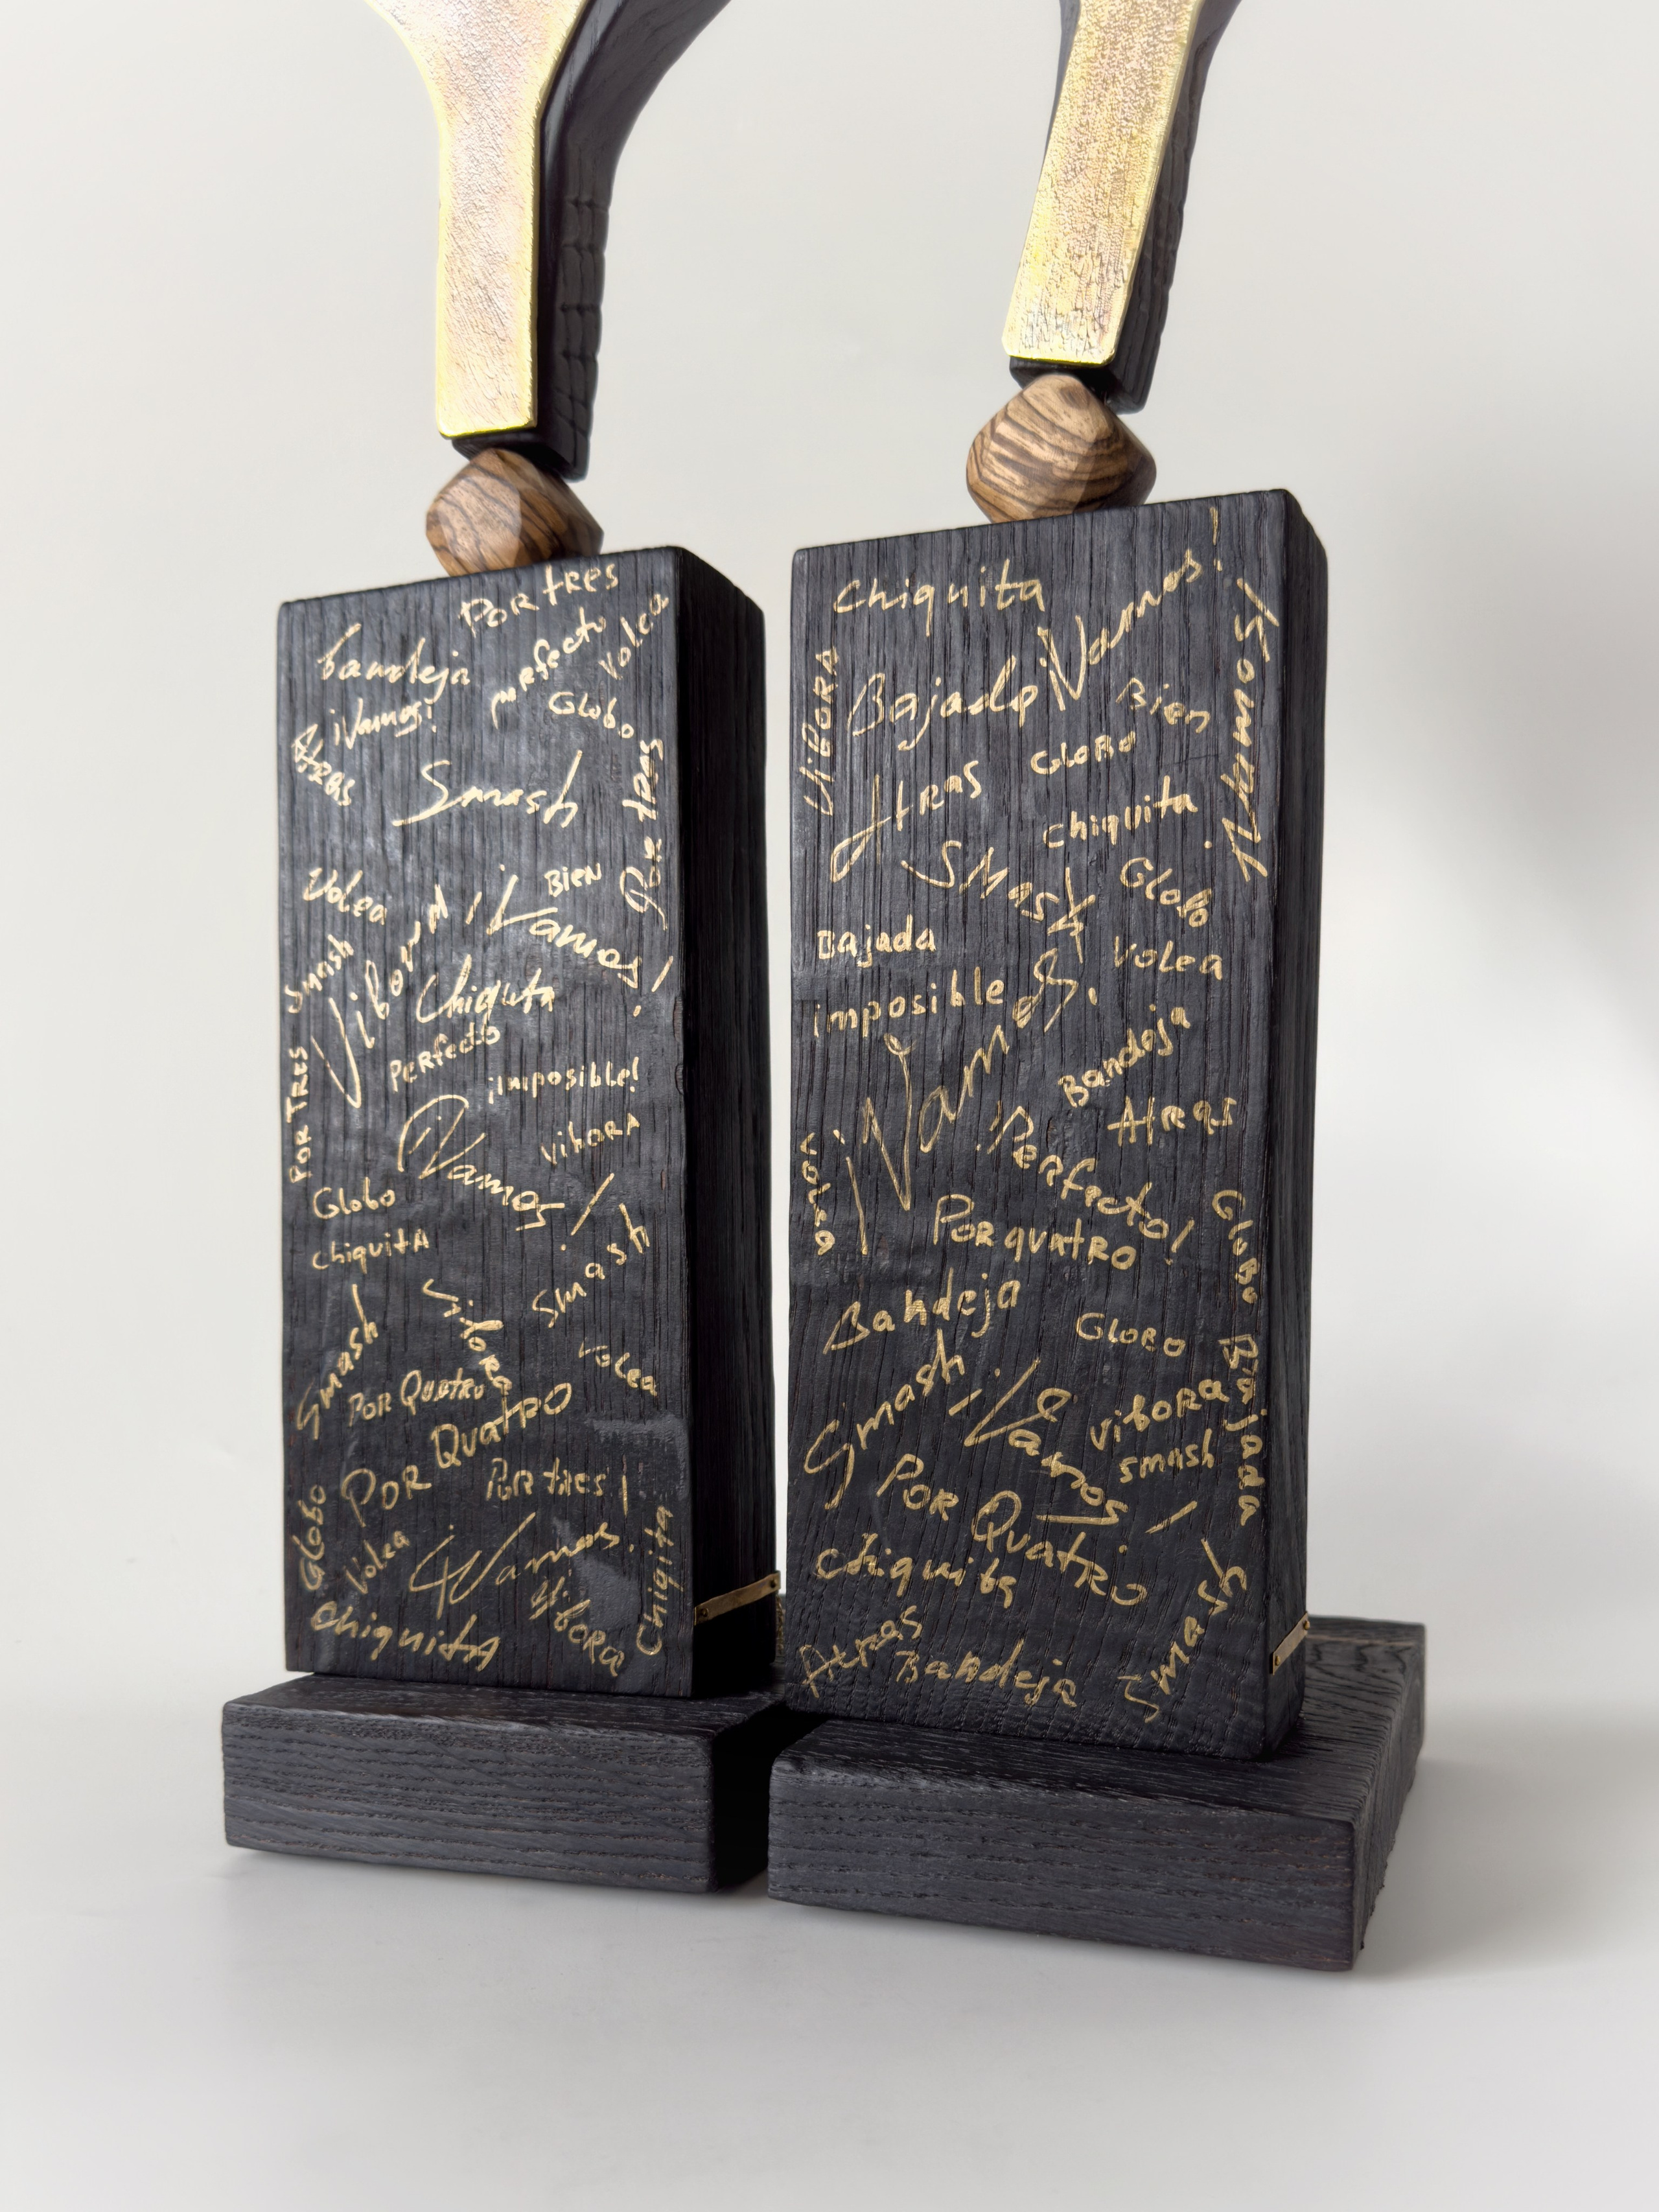 Por tres
bandeja
perfecto
Volea
¡Vamos!
Globo
Atras
Smash
Por tres
Volea
Bien
¡Vamos!
Smash
Vibora
Chiquita
Perfecto
¡imposible!
Por Tres
¡Vamos!
Vibora
Globo
Chiquita
Smash
Smash
Vibora
Volea
Por Quatro
Por Quatro
Por tres!
Globo
Volea
¡Vamos!
Vibora
Chiquita
Chiquita
Chiquita
¡Vamos!
Vibora
Bajada
Bien
Globo
Atras
Chiquita
Smash
Globo
Bajada
Volea
imposible
¡Vamos!
Bandeja
Atras
¡Perfecto!
Volea
Por quatro
Globo
Bandeja
Globo
Smash
¡Vamos!
Vibora
Bajada
smash
Por Quatro
Chiquita
Smash
Atras
Bandeja